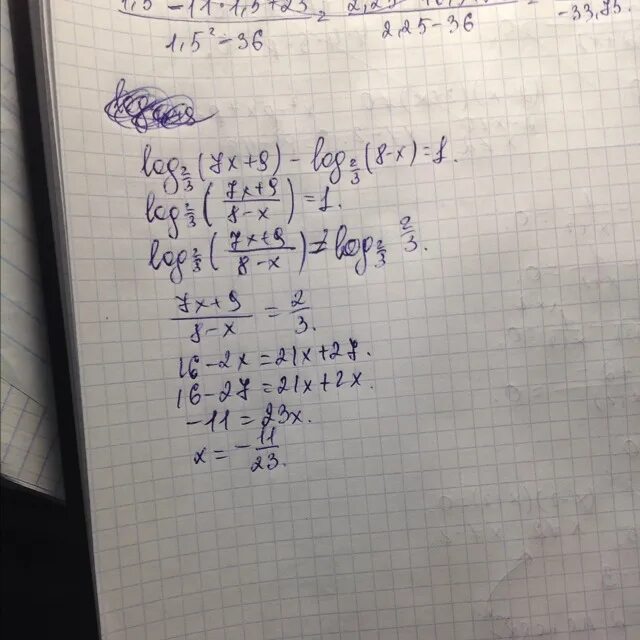 1,5 - 11 · 1,5 + 23 / 1,5² - 36 = 2,25 / 2,25 - 36 = -33,75.
log_{2/3}(7x+9) - log_{2/3}(8-x) = 1.
log_{2/3}((7x+9)/(8-x)) = 1.
log_{2/3}((7x+9)/(8-x)) = log_{2/3} 2/3.
(7x+9)/(8-x) = 2/3.
16-2x=21x+27.
16-27=21x+2x.
-11=23x.
x = -11/23.